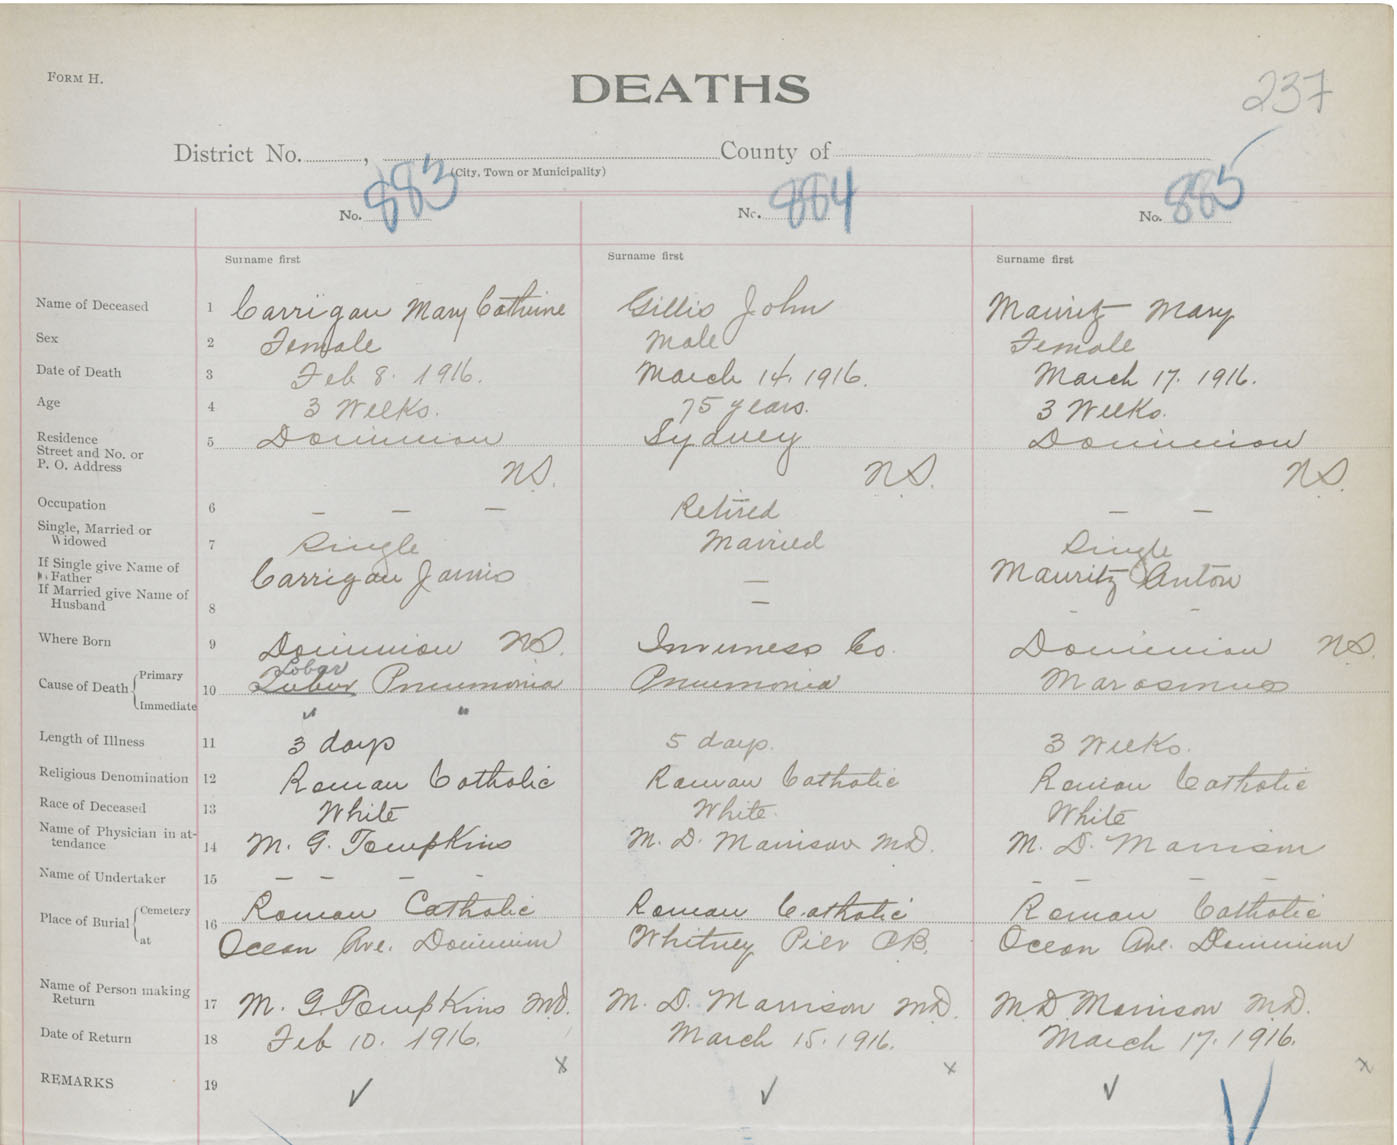 FORM H.
DEATHS
237
District No. , County of
(City, Town or Municipality)
No. 883 No. 884 No. 885
Surname first Surname first Surname first
Name of Deceased 1 Carrigan Mary Catherine Gillis John Mauritz Mary
Sex 2 Female Male Female
Date of Death 3 Feb 8. 1916. March 14. 1916. March 17. 1916.
Age 4 3 Weeks. 75 years. 3 Weeks.
Residence
Street and No. or 5 Dominion Sydney Dominion
P. O. Address N.S. N.S. N.S.
Occupation 6 — — — Retired — —
Single, Married or
Widowed 7 Single Married Single
If Single give Name of
Father Carrigan James — Mauritz Anton
If Married give Name of
Husband 8 — - -
Where Born 9 Dominion N.S. Inverness Co. Dominion N.S.
Lobar
Cause of Death Primary 10 Lobar Pneumonia Pneumonia Marasmus
Immediate " "
Length of Illness 11 3 days 5 days. 3 Weeks.
Religious Denomination 12 Roman Catholic Roman Catholic Roman Catholic
Race of Deceased 13 White White. White
Name of Physician in at-
tendance 14 M. G. Tompkins M. D. Morrison M.D. M. D. Morrison
Name of Undertaker 15 — — — - — — — —
Place of Burial Cemetery 16 Roman Catholic Roman Catholic Roman Catholic
at Ocean Ave. Dominion Whitney Pier C.B. Ocean Ave. Dominion
Name of Person making
Return 17 M. G Tompkins M.D. M. D. Morrison M.D. M.D. Morrison M.D.
Date of Return 18 Feb 10. 1916. March 15. 1916. March 17. 1916.
x x x
REMARKS 19 ✓ ✓ ✓